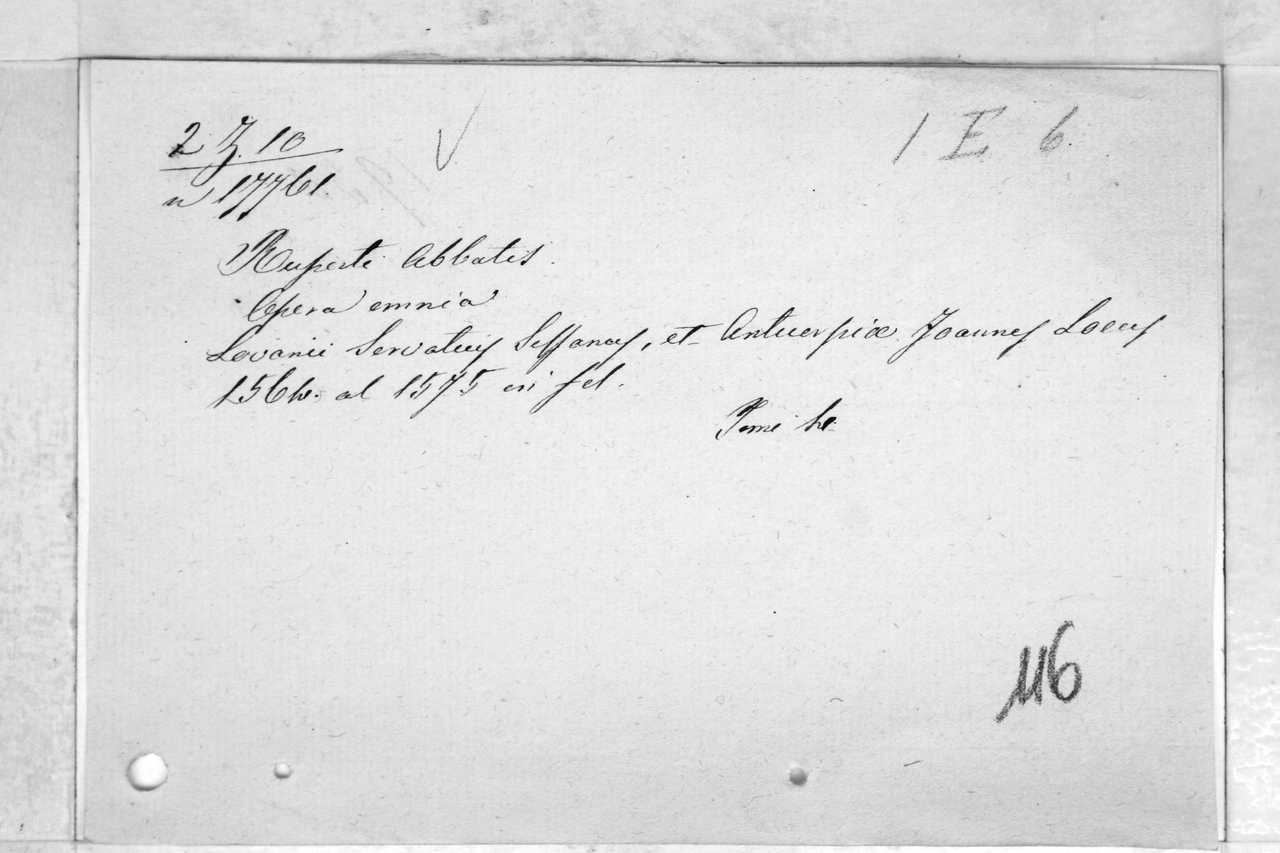 2 Z. 10
1 E 6.
n 17761.
Ruperti Abbatis.
Opera omnia
Lovanii Servatius Sassanus, et Antuerpiæ Joannes Loeus
1564. al 1575 in fol.
Tomi 4.
116